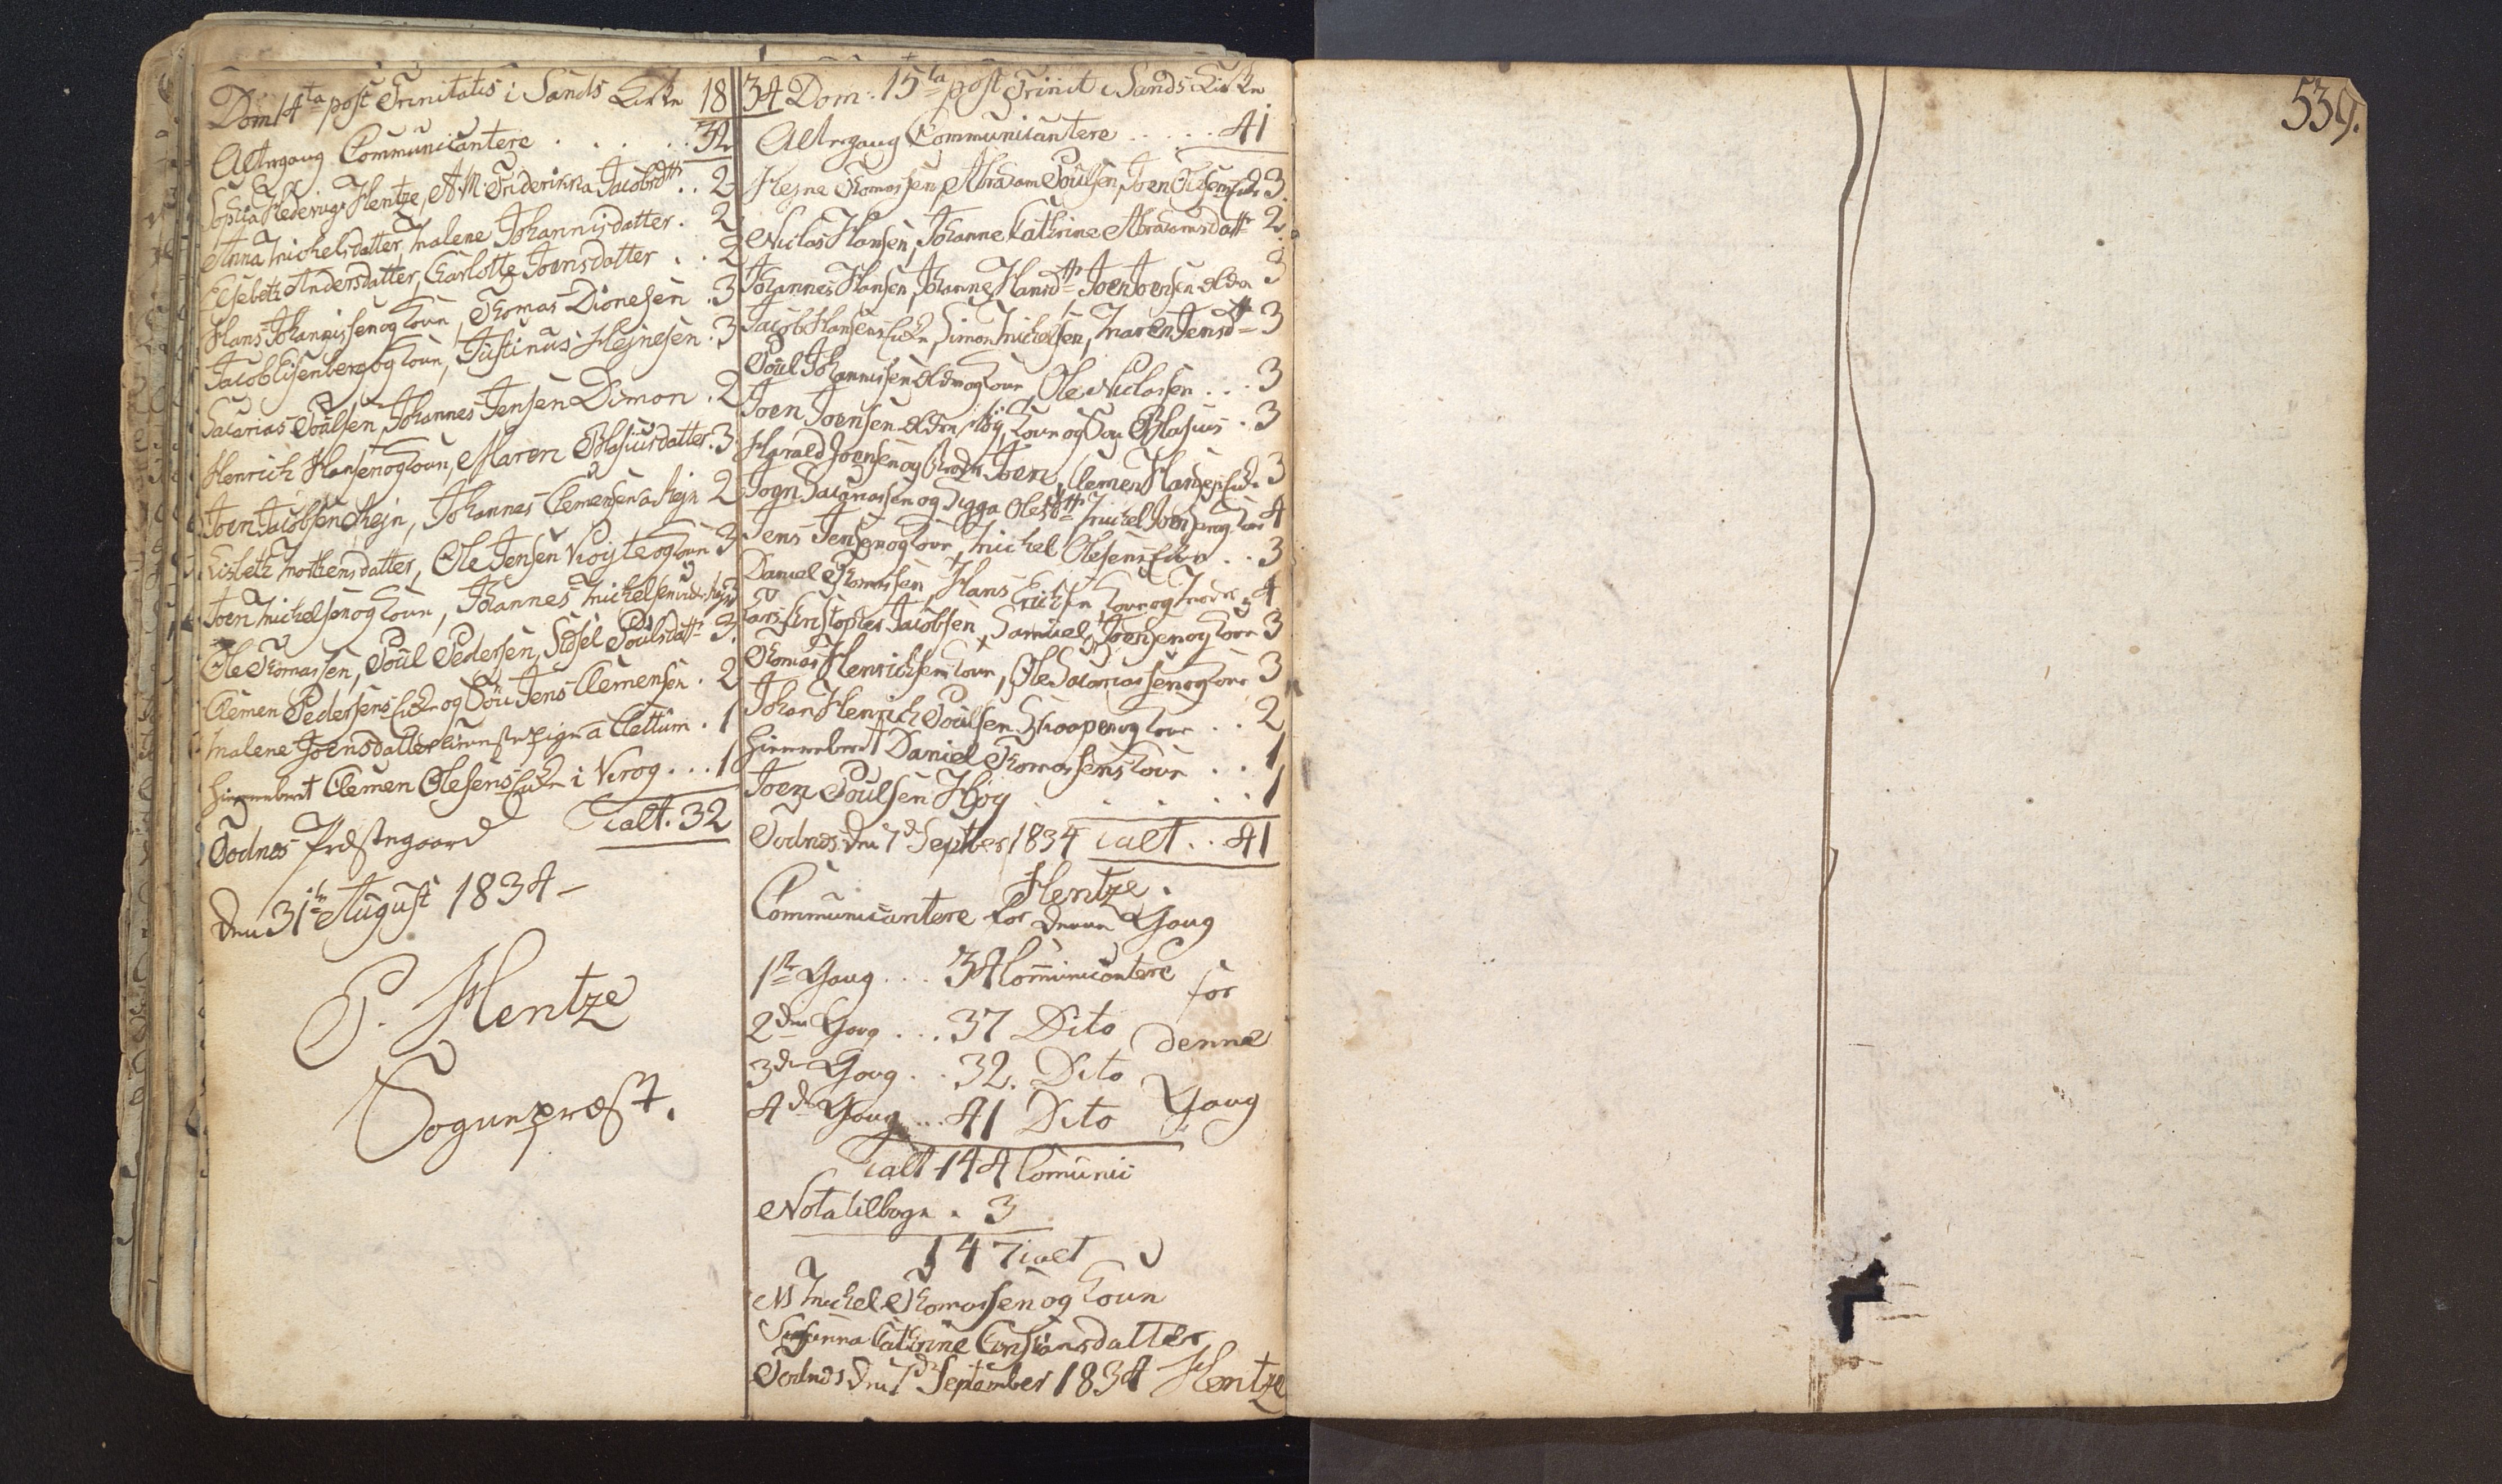 Dom 14ta post Trinitatis i Sands Kirke 18
Altergang Communicantere . . . . . 32
Sophia Hedevig Hentze, A. M. Friderikka Jacobsdttr . . 2
Anna Michelsdatter, Malene Johannisdatter . 2
Elsebeth Andersdatter, Charlotte Joensdatter . . 2
Hans Johannissen og Kone, Thomas Dionesen . 3
Jacob Eisenberg og Kone, Justinus Hejnesen . 3
Sacarias Poulsen, Johannes Jensen Dimon . 2
Henrich Hansen og Kone, Maren Blasiusdatter . 3
Joen Jacobsen Skejn, Johannes Clemensen a Skejn 2
Lisbeth Mortensdatter, Ole Jensen og Kone 3
Joen Michelsen og Kone, Johannes Michelsen
Ole Thomassen, Poul Pedersen, Sidsel Poulsdattr 3
Clemen Pedersens Enke og Søn Jens Clemensen . 2
Malene Joensdatter pige a Clettum . 1
Hiemmeberet Clemen Olesens Enke i . . . 1
Todnes Præstegaard ialt . 32
den 31te August 1834 –
P. Hentze
Sognepræst.
34 Dom . 15ta post Trinit i Sands Kirke
Altergang Communicantere . . . . . 41
Hejne Thomassen, Abraham Poulsen, Joen Olesens Enke 3
Niclas Hansen, Johanne Cathrine Abrahamsdattr 2
Johannes Hansen, Johanne Hansdttr Joen Joensen Eldre 3
Jacob Hansens Enke, Simon Michelsen, Maren Jensdttr 3
Poul Johannissen Eldre og Kone, Ole Niclassen . . . 3
Joen Joensen Eldre Kone og Søn Blasius . 3
Harald Joensen og Broder Joen, Clemen Hansens Enke 3
Joen og Sigga Olesdttr, Michel Joensen og Kone 4
Jens Jensen og Kone, Michel Olesens Enke . . 3
Daniel Thomassen, Hans Erichsen, Kone og Moder . 4
Lars Christopher Jacobsen, Samuel Joensen og Kone 3
Thomas Henrichsens Kone, Ole Sacariassen og Kone 3
Johan Henrich Poulsen og Kone . . 2
Hiemmeberet Daniel Thomassens Kone . . 1
Joen Poulsen Høy . . . . . 1
Todnes den 7d Septber 1834 ialt . . 41
Hentze .
Communicantere for denne Gang
1ste Gang . . . . 34 Communicantere
2den Gang . . . 37 Dito
3de Gang . . 32. Dito
4de Gang . . . 41 Dito
for
denne
Gang
ialt 144 Comunic
Nota tilbage . 3
147 ialt
N Michel Thomassen og Kone
Susanna Cathrine Christiansdatter
Todnes den 7d September 1834 Hentze
539.